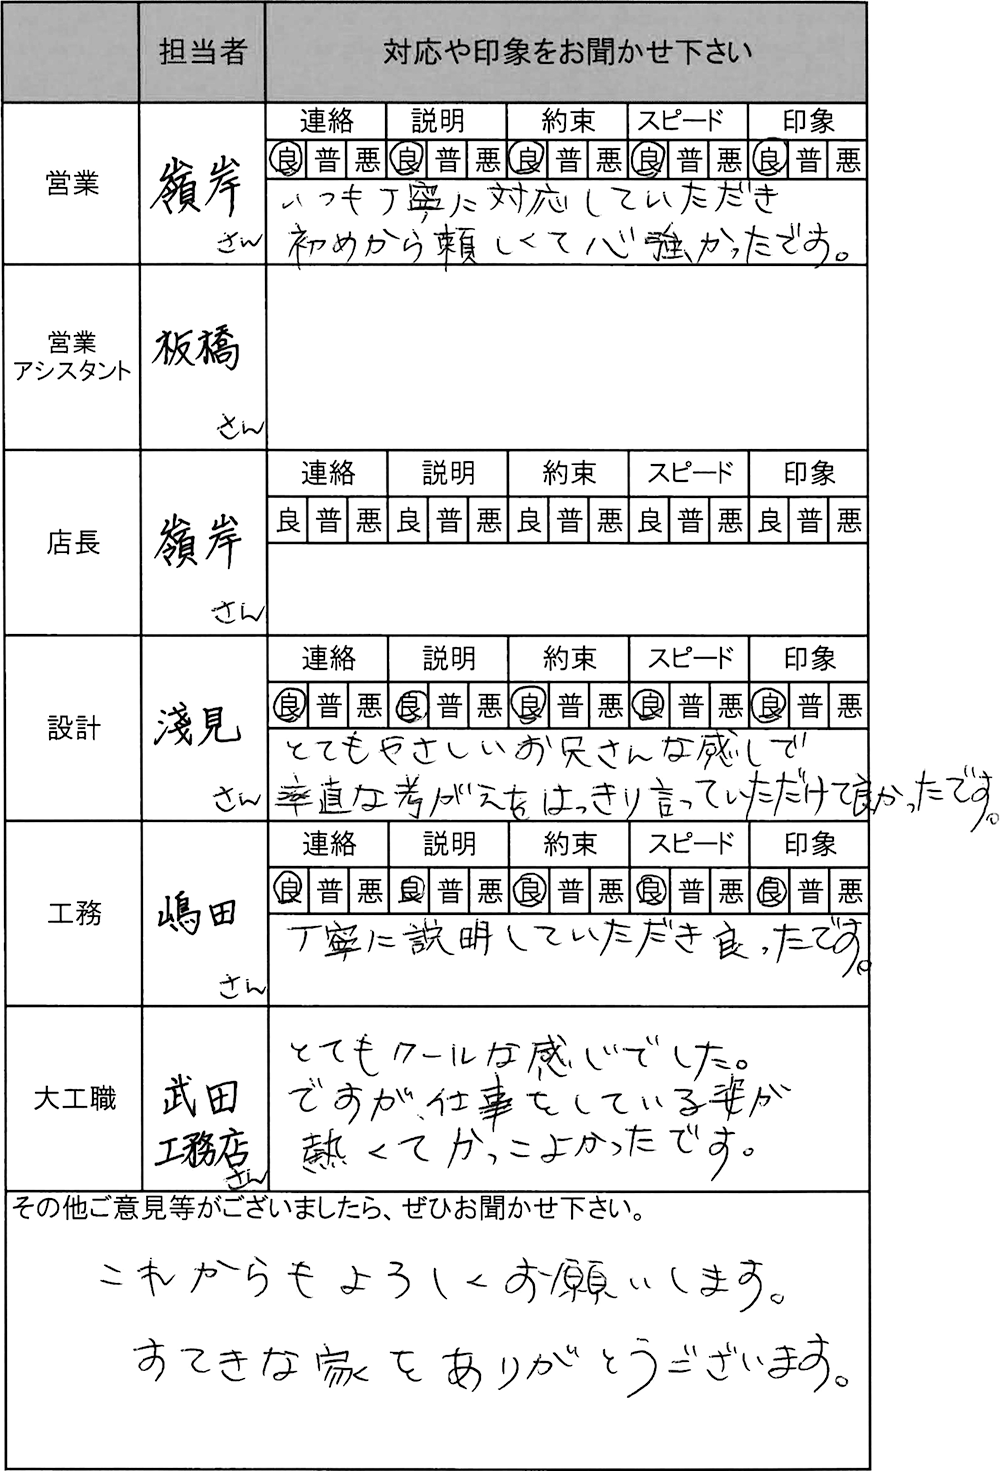 担当者 対応や印象をお聞かせ下さい
連絡 説明 約束 スピード 印象
営業 嶺岸さん 良 普 悪 良 普 悪 良 普 悪 良 普 悪 良 普 悪
いつも丁寧に対応していただき
初めから頼しくて心強かったです。
営業アシスタント 板橋さん
連絡 説明 約束 スピード 印象
店長 嶺岸さん 良 普 悪 良 普 悪 良 普 悪 良 普 悪 良 普 悪
連絡 説明 約束 スピード 印象
設計 淺見さん 良 普 悪 良 普 悪 良 普 悪 良 普 悪 良 普 悪
とてもやさしいお兄さんな感じで
率直な考がえをはっきり言っていただけて良かったです。
連絡 説明 約束 スピード 印象
工務 嶋田さん 良 普 悪 良 普 悪 良 普 悪 良 普 悪 良 普 悪
丁寧に説明していただき良ったです。
大工職 武田工務店さん
とてもクールな感じでした。
ですが、仕事をしている姿が
熱くてかっこよかったです。
その他ご意見等がございましたら、ぜひお聞かせ下さい。
これからもよろしくお願いします。
すてきな家をありがとうございます。